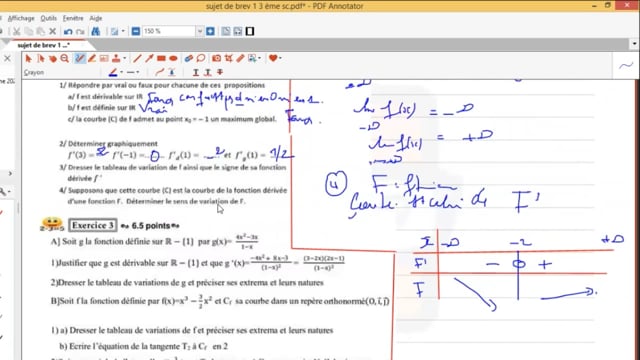 sujet de brev 1 3 ème sc.pdf* - PDF Annotator
Affichage Outils Fenêtre Aide
150 %
sujet de brev 1 ...*
Crayon
1/ Répondre par vrai ou faux pour chacune de ces propositions
a/ f est dérivable sur IR
b/ f est définie sur IR vrai
c/ la courbe C de f admet au point x₀ = − 1 un maximum global. Faux
2/ Déterminer graphiquement
f'(3) = 2 f'(−1) = 0 f'd(1) = −2 et f'g(1) = 1/2
3/ Dresser le tableau de variation de f ainsi que le signe de sa fonction
dérivée f'
4/ Supposons que cette courbe (C) est la courbe de la fonction dérivée
d'une fonction F. Déterminer le sens de variation de F.
Exercice 3 6.5 points
A] Soit g la fonction définie sur IR − {1} par g(x)= 4x²−3x / 1−x
1)Justifier que g est dérivable sur IR − {1} et que g '(x)= −4x²+ 8x−3 / (1−x)² = (3−2x)(2x−1) / (1−x)²
2)Dresser le tableau de variations de g et préciser ses extrema et leurs natures
B]Soit f la fonction définie par f(x)=x³ − 3/2 x² et Cf sa courbe dans un repère orthonormé (O, i, j)
1) a) Dresser le tableau de variations de f et préciser ses extrema et leurs natures
b) Ecrire l'équation de la tangente T₂ à Cf en 2
lim f(x) = −∞
−∞
lim f(x) = +∞
4) F :
Courbe F'
x −∞ −2 +∞
F' − 0 +
F